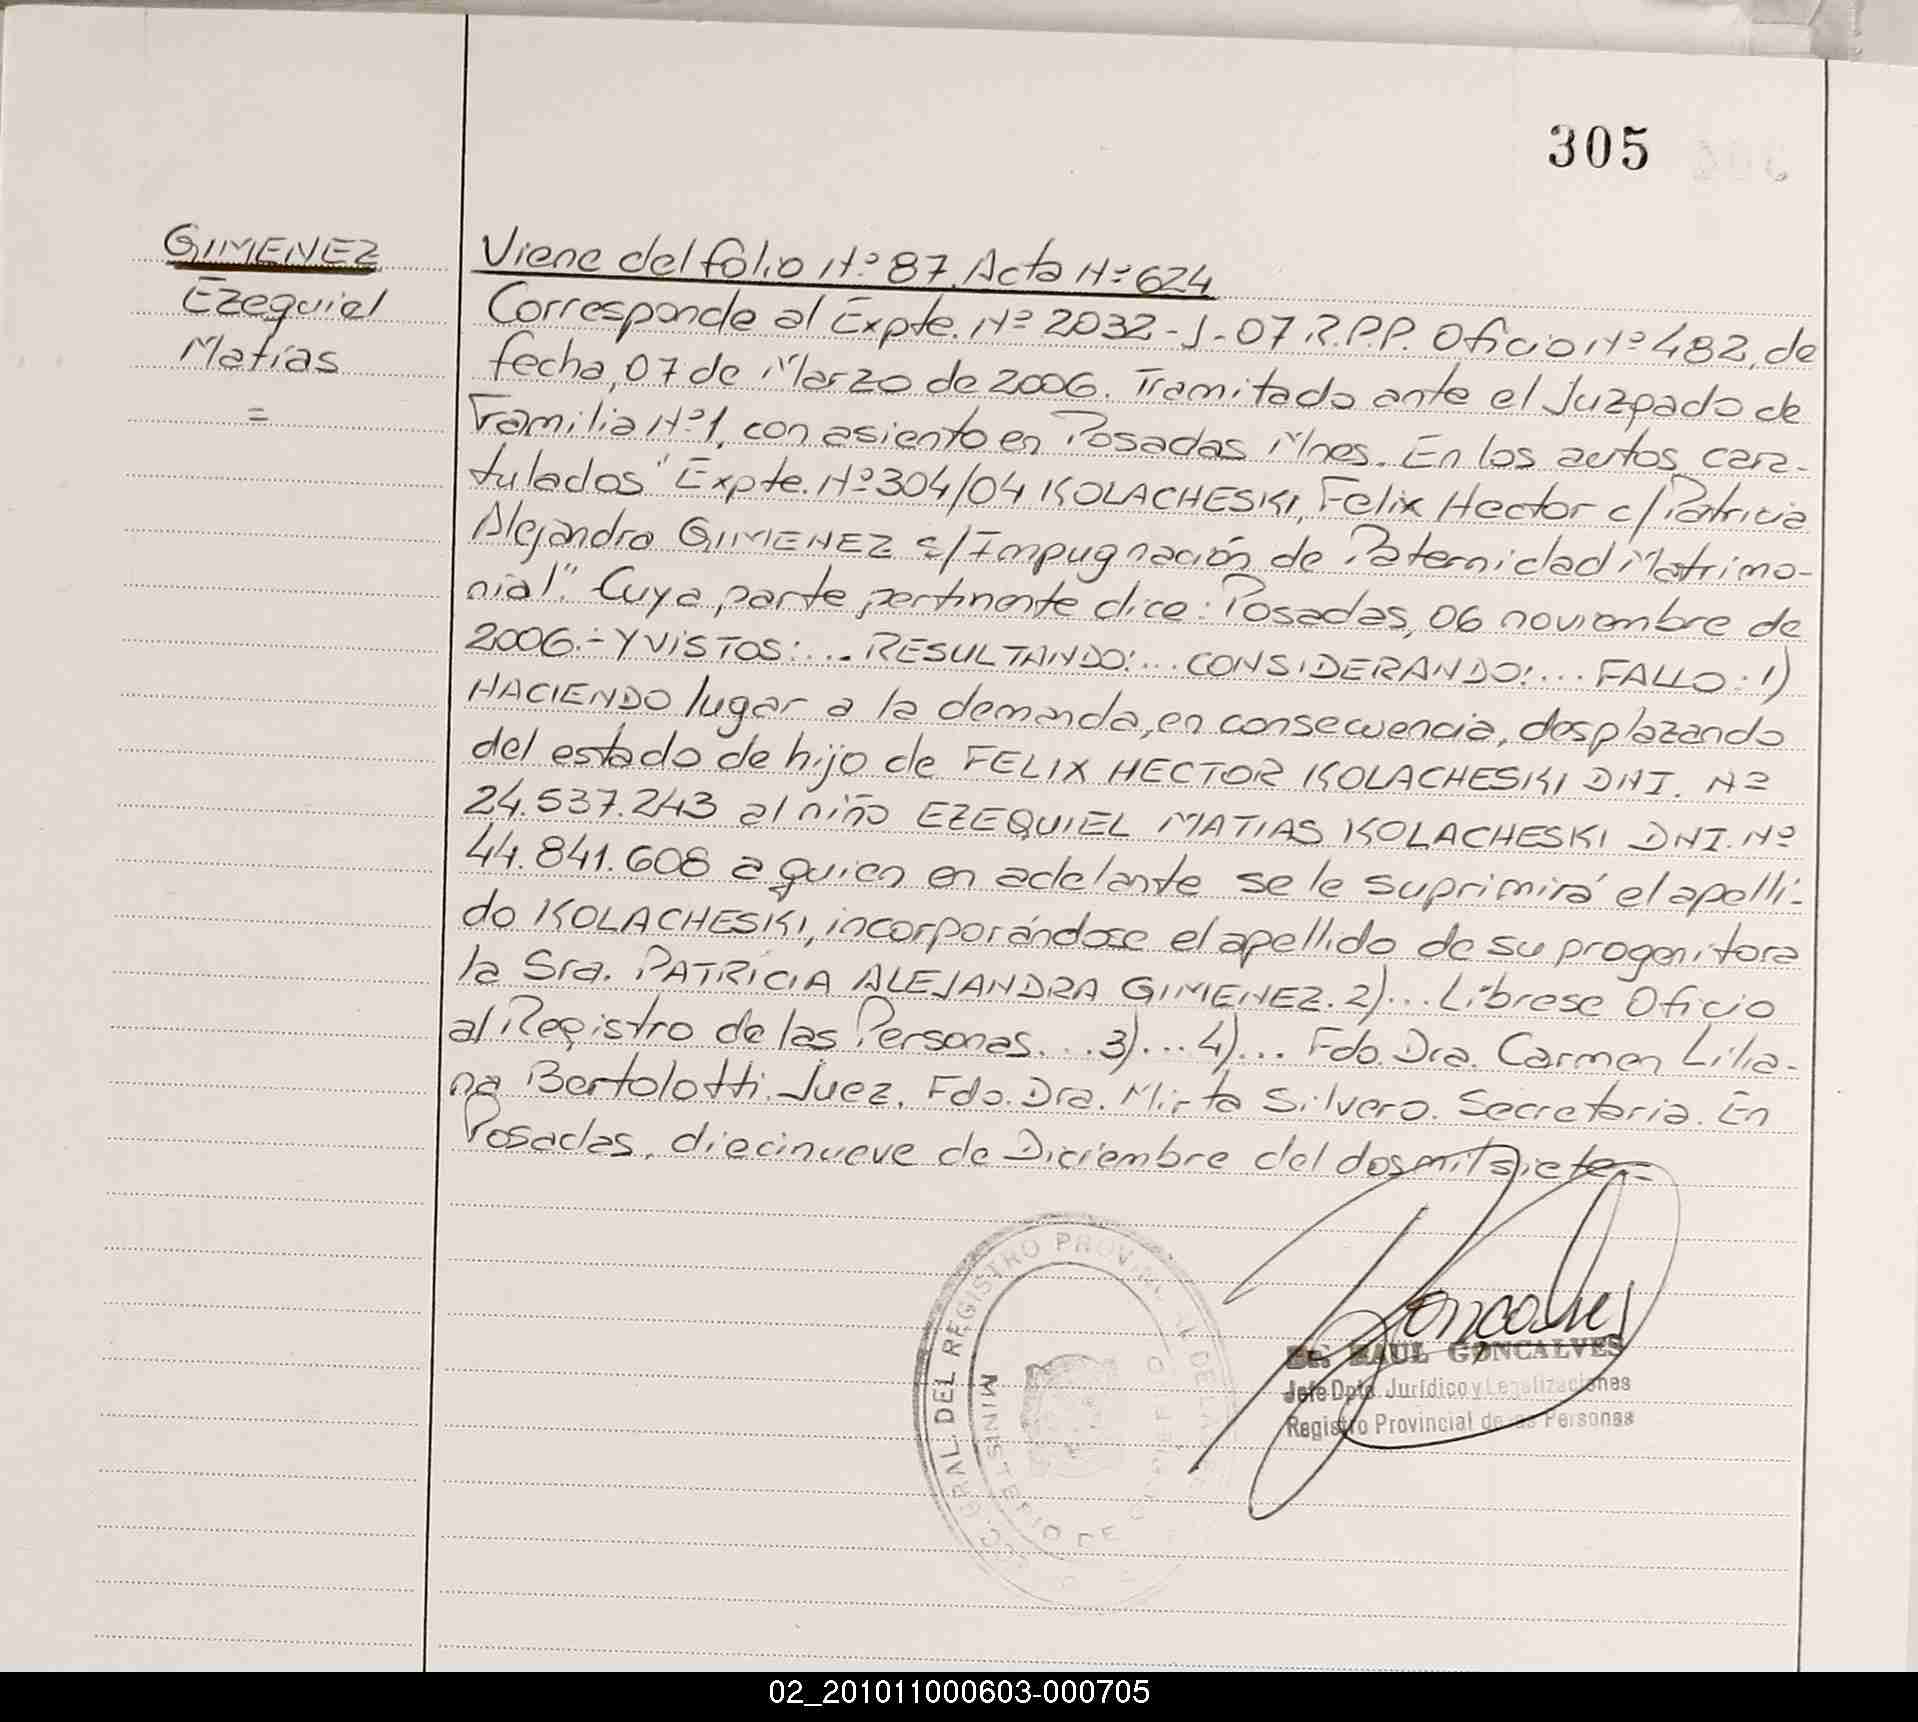 305
GIMENEZ
Ezequiel
Matías
=
Viene del folio Nº 87. Acta Nº 624
Corresponde al Expte. Nº 2032-J-07 R.P.P. Oficio Nº 482, de
fecha, 07 de Marzo de 2006. Tramitado ante el Juzgado de
Familia Nº1, con asiento en Posadas Mnes. En los autos cara-
tulados "Expte. Nº 304/04 KOLACHESKI, Felix Hector c/Patricia
Alejandra GIMENEZ s/Impugnación de Paternidad Matrimo-
nial". Cuya parte pertinente dice: Posadas, 06 noviembre de
2006.- Y VISTOS:... RESULTANDO:... CONSIDERANDO:... FALLO: 1)
HACIENDO lugar a la demanda, en consecuencia, desplazando
del estado de hijo de FELIX HECTOR KOLACHESKI DNI. Nº
24.537.243 al niño EZEQUIEL MATIAS KOLACHESKI DNI. Nº
44.841.608 a quien en adelante se le suprimirá el apelli-
do KOLACHESKI, incorporándose el apellido de su progenitora
la Sra. PATRICIA ALEJANDRA GIMENEZ. 2)... Líbrese Oficio
al Registro de las Personas...3)...4)... Fdo. Dra. Carmen Lilia-
na Bertolotti. Juez. Fdo. Dra. Mirta Silvero. Secretaria. En
Posadas, diecinueve de Diciembre del dos mil siete=
GRAL. DEL REGISTRO PROVINCIAL DE LAS
MINISTERIO DE GOBIERNO
Goncalves
Dr. RAUL GONCALVES
Jefe Dpto. Jurídico y Legalizaciones
Registro Provincial de las Personas
02_201011000603-000705